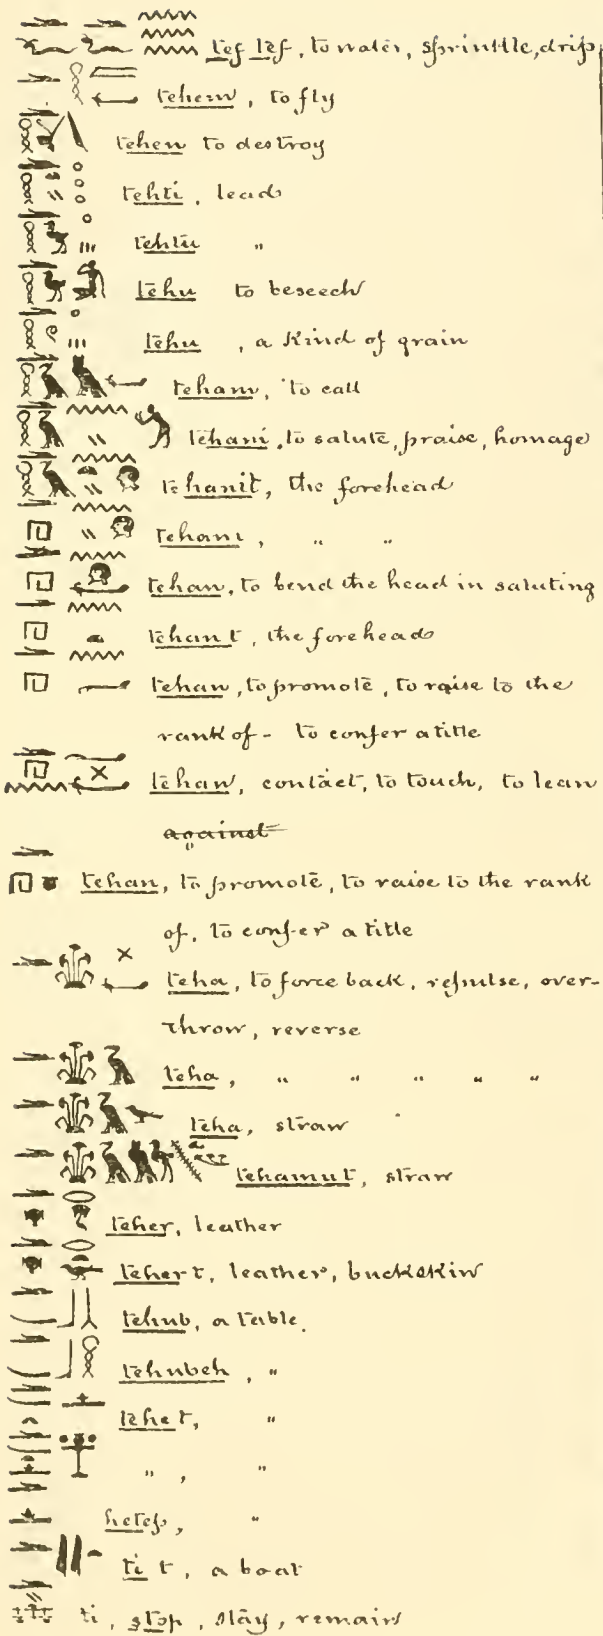 tef tef, to water, sprinkle, drip,
tehem, to fly
tehen to destroy
tehti, lead
tehtu "
tehu to beseech
tehu, a kind of grain
teham, to call
tehani, to salute, praise, homage
tehanit, the forehead
tehani, " "
tehan, to bend the head in saluting
tehan t, the forehead
tehan, to promote, to raise to the
rank of - to confer a title
tehan, contact, to touch, to lean
against
tehan, to promote, to raise to the rank
of, to confer a title
teha, to force back, repulse, over-
throw, reverse
teha, " " " " "
teha, straw
tehamut, straw
teher, leather
tehert, leather, buckskin
tehub, a table.
tehubeh, "
tehet, "
", "
hetep, "
ti t, a boat
ti, stop, stay, remain